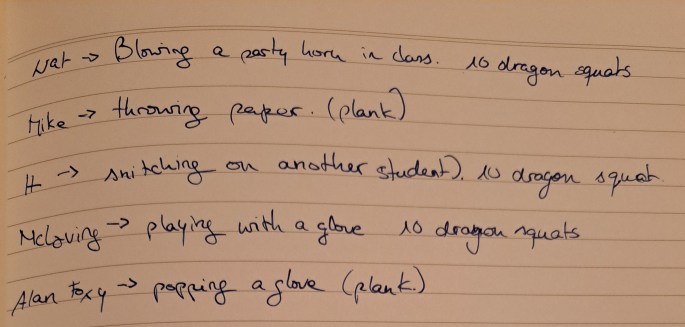 Nat → Blowing a party horn in class. 10 dragon squats
Mike → throwing paper. (plank)
H → snitching on another student). 10 dragon squat.
McLoving → playing with a glove 10 dragon squats
Alan Foxy → popping a glove (plank.)